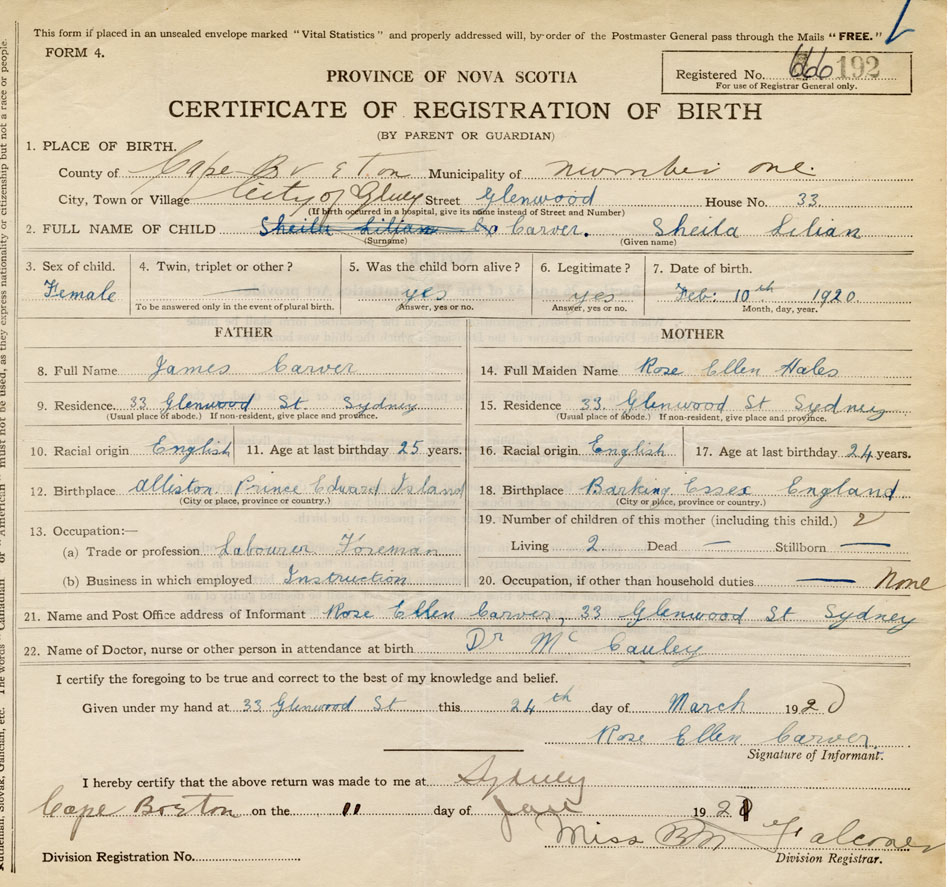 This form if placed in an unsealed envelope marked "Vital Statistics" and properly addressed will, by order of the Postmaster General pass through the Mails "FREE."
FORM 4.
Registered No. 666 192
For use of Registrar General only.
PROVINCE OF NOVA SCOTIA
CERTIFICATE OF REGISTRATION OF BIRTH
(BY PARENT OR GUARDIAN)
1. PLACE OF BIRTH.
County of Cape Breton Municipality of number one.
City, Town or Village City of Street Glenwood House No. 33
(If birth occurred in a hospital, give its name instead of Street and Number)
2. FULL NAME OF CHILD Sheila Lilian Carver. Sheila Lilian
(Surname) (Given name)
3. Sex of child. 4. Twin, triplet or other? 5. Was the child born alive? 6. Legitimate? 7. Date of birth.
Female — yes yes Feb: 10th 1920.
To be answered only in the event of plural birth. Answer, yes or no. Answer, yes or no. Month, day, year.
FATHER
8. Full Name James Carver
9. Residence 33 Glenwood St. Sydney
(Usual place of abode.) If non-resident, give place and province.
10. Racial origin English 11. Age at last birthday 25 years.
12. Birthplace Alliston. Prince Edward Island
(City or place, province or country.)
13. Occupation:—
(a) Trade or profession Labourer Foreman
(b) Business in which employed Instruction
MOTHER
14. Full Maiden Name Rose Ellen Hales
15. Residence 33 Glenwood St Sydney
(Usual place of abode.) If non-resident, give place and province.
16. Racial origin English 17. Age at last birthday 24 years.
18. Birthplace Barking Essex England
(City or place, province or country.)
19. Number of children of this mother (including this child.) 2
Living 2. Dead — Stillborn —
20. Occupation, if other than household duties — None
21. Name and Post Office address of Informant Rose Ellen Carver, 33 Glenwood St Sydney
22. Name of Doctor, nurse or other person in attendance at birth Dr McCauley
I certify the foregoing to be true and correct to the best of my knowledge and belief.
Given under my hand at 33 Glenwood St this 24th day of March 1920
Rose Ellen Carver.
Signature of Informant.
I hereby certify that the above return was made to me at Sydney
Cape Borton on the 11 day of Jan 192
Miss BM Falconer
Division Registration No. Division Registrar.
Ruthenian, Slovak, Galician, etc. The words "Canadian" or "American" must not be used, as they express nationality or citizenship but not a race or people.